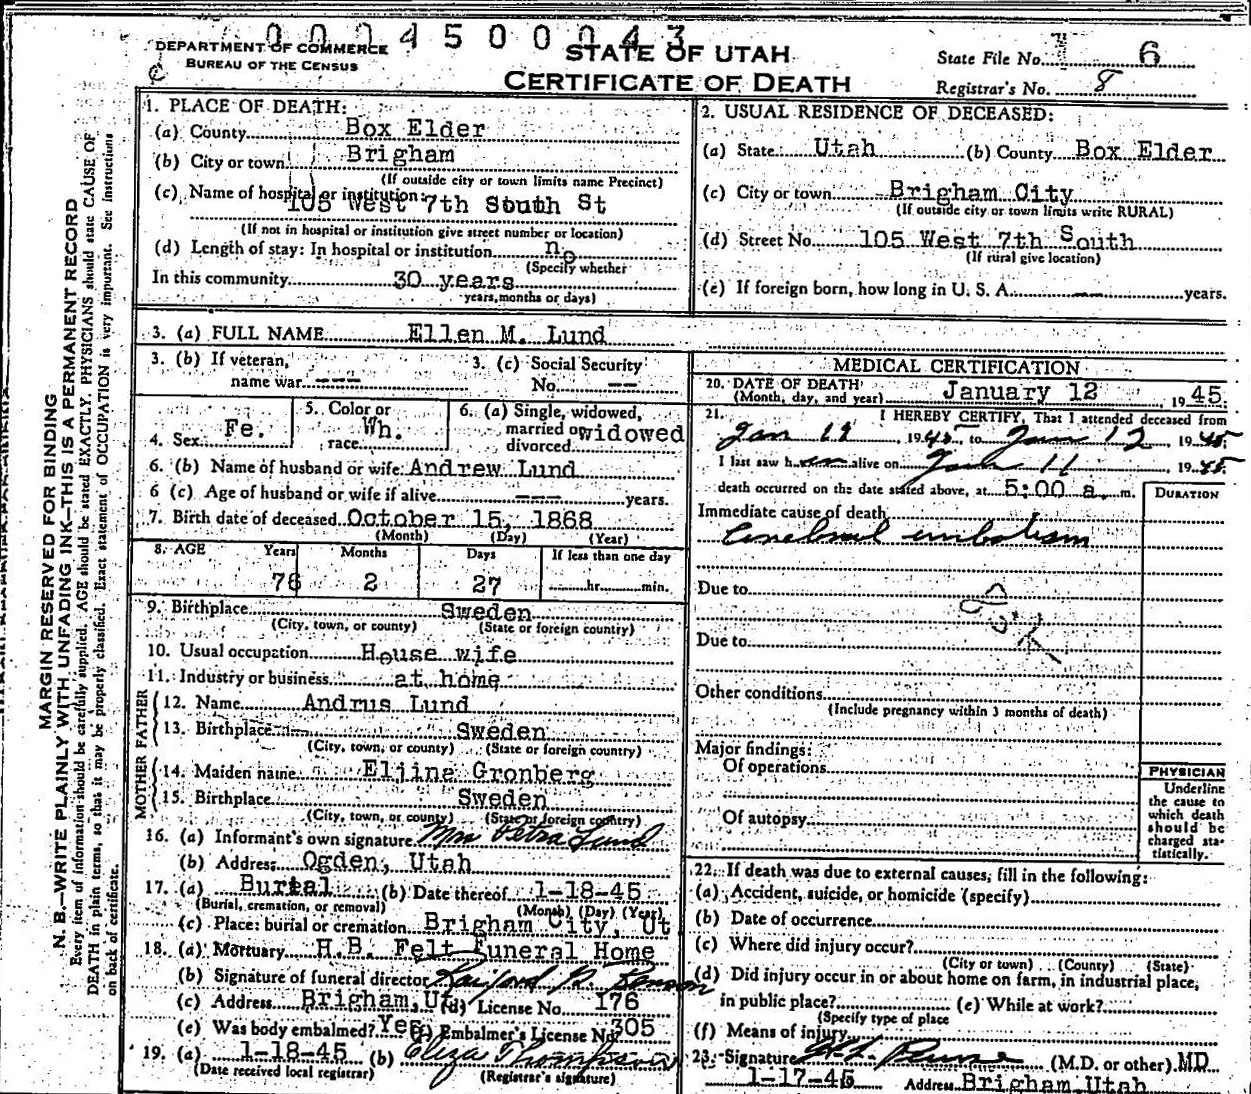 0004500043
DEPARTMENT OF COMMERCE
BUREAU OF THE CENSUS
STATE OF UTAH
CERTIFICATE OF DEATH
State File No. 6
Registrar's No. 8
MARGIN RESERVED FOR BINDING
N. B.—WRITE PLAINLY WITH UNFADING INK—THIS IS A PERMANENT RECORD
Every item of information should be carefully supplied. AGE should be stated EXACTLY. PHYSICIANS should state CAUSE OF
DEATH in plain terms, so that it may be properly classified. Exact statement of OCCUPATION is very important. See instructions
on back of certificate.
1. PLACE OF DEATH:
(a) County Box Elder
(b) City or town Brigham
(If outside city or town limits name Precinct)
(c) Name of hospital or institution:
105 West 7th South St
(If not in hospital or institution give street number or location)
(d) Length of stay: In hospital or institution no
(Specify whether
In this community 30 years
years, months or days)
2. USUAL RESIDENCE OF DECEASED:
(a) State Utah (b) County Box Elder
(c) City or town Brigham City
(If outside city or town limits write RURAL)
(d) Street No. 105 West 7th South
(If rural give location)
(e) If foreign born, how long in U. S. A. -- years.
3. (a) FULL NAME Ellen M. Lund
3. (b) If veteran,
name war ---
3. (c) Social Security
No. --
4. Sex Fe.
5. Color or
race Wh.
6. (a) Single, widowed,
married or
divorced widowed
6. (b) Name of husband or wife Andrew Lund
6 (c) Age of husband or wife if alive --- years.
7. Birth date of deceased October 15, 1868
(Month) (Day) (Year)
8. AGE Years Months Days If less than one day
76 2 27 hr. min.
9. Birthplace Sweden
(City, town, or county) (State or foreign country)
10. Usual occupation House wife
11. Industry or business at home
FATHER
12. Name Andrus Lund
13. Birthplace Sweden
(City, town, or county) (State or foreign country)
MOTHER
14. Maiden name Eljine Gronberg
15. Birthplace Sweden
(City, town, or county) (State or foreign country)
16. (a) Informant's own signature Mrs Petra Lund
(b) Address Ogden, Utah
17. (a) Burial (b) Date thereof 1-18-45
(Burial, cremation, or removal) (Month) (Day) (Year)
(c) Place: burial or cremation Brigham City, Ut
18. (a) Mortuary H.B. Felt Funeral Home
(b) Signature of funeral director
(c) Address Brigham, Ut (d) License No. 176
(e) Was body embalmed? Yes (f) Embalmer's License No. 305
19. (a) 1-18-45 (b) Eliza Thompson
(Date received local registrar) (Registrar's signature)
MEDICAL CERTIFICATION
20. DATE OF DEATH January 12, 1945.
(Month, day, and year)
21. I HEREBY CERTIFY, That I attended deceased from
Jan 11, 1945, to Jan 12, 1945
I last saw her alive on Jan 11, 1945
death occurred on the date stated above, at 5:00 a. m.
DURATION
Immediate cause of death
Cerebral embolism
Due to
Due to
Other conditions
(Include pregnancy within 3 months of death)
Major findings:
Of operations
Of autopsy
PHYSICIAN
Underline
the cause to
which death
should be
charged sta-
tistically.
22. If death was due to external causes, fill in the following:
(a) Accident, suicide, or homicide (specify)
(b) Date of occurrence
(c) Where did injury occur?
(City or town) (County) (State)
(d) Did injury occur in or about home on farm, in industrial place,
in public place? (e) While at work?
(Specify type of place
(f) Means of injury
23. Signature (M.D. or other) MD
1-17-45 Address Brigham, Utah